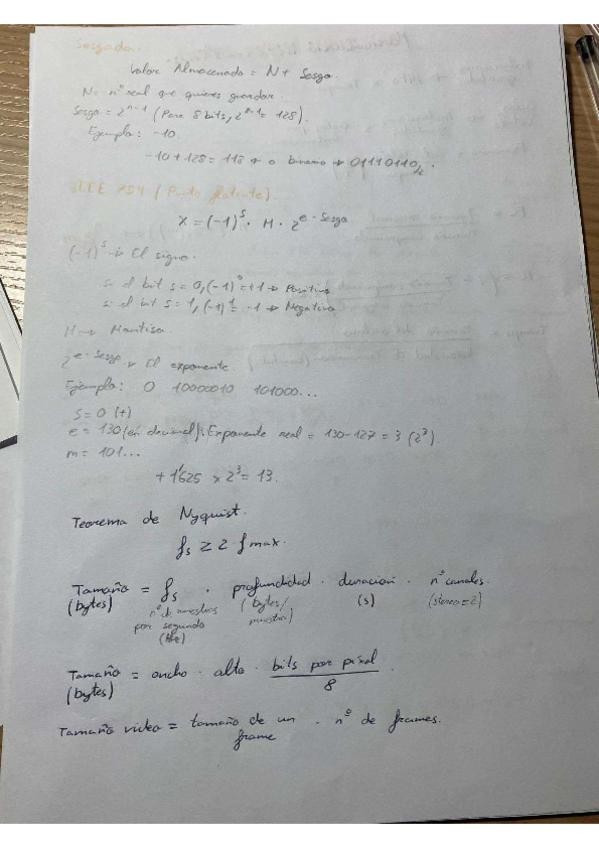 Sesgada.
Valor Almacenado = N + Sesgo.
N = nº real que quieres guardar.
Sesgo = 2^(n-1) (Para 8 bits, 2^(8-1) = 128).
Ejemplo: -10.
-10 + 128 = 118 → a binario → 01110110₂.
IEEE 754 (Punto flotante).
X = (-1)^s · M · 2^(e - Sesgo)
(-1)^s → El signo.
si el bit s = 0, (-1)^0 = +1 → Positivo
si el bit s = 1, (-1)^1 = -1 → Negativo
M → Mantisa.
2^(e - Sesgo) → El exponente
Ejemplo: 0 10000010 101000...
S = 0 (+)
e = 130 (en decimal). Exponente real = 130 - 127 = 3 (2³).
m = 101...
+ 1'625 × 2³ = 13.
Teorema de Nyquist.
fs ≥ 2 · fmax.
Tamaño = fs · profundidad · duración · nº canales.
(bytes) nº de muestras por segundo (Hz) (bytes/muestra) (s) (stereo = 2)
Tamaño = ancho · alto · bits por píxel / 8.
(bytes)
Tamaño video = tamaño de un frame · nº de frames.